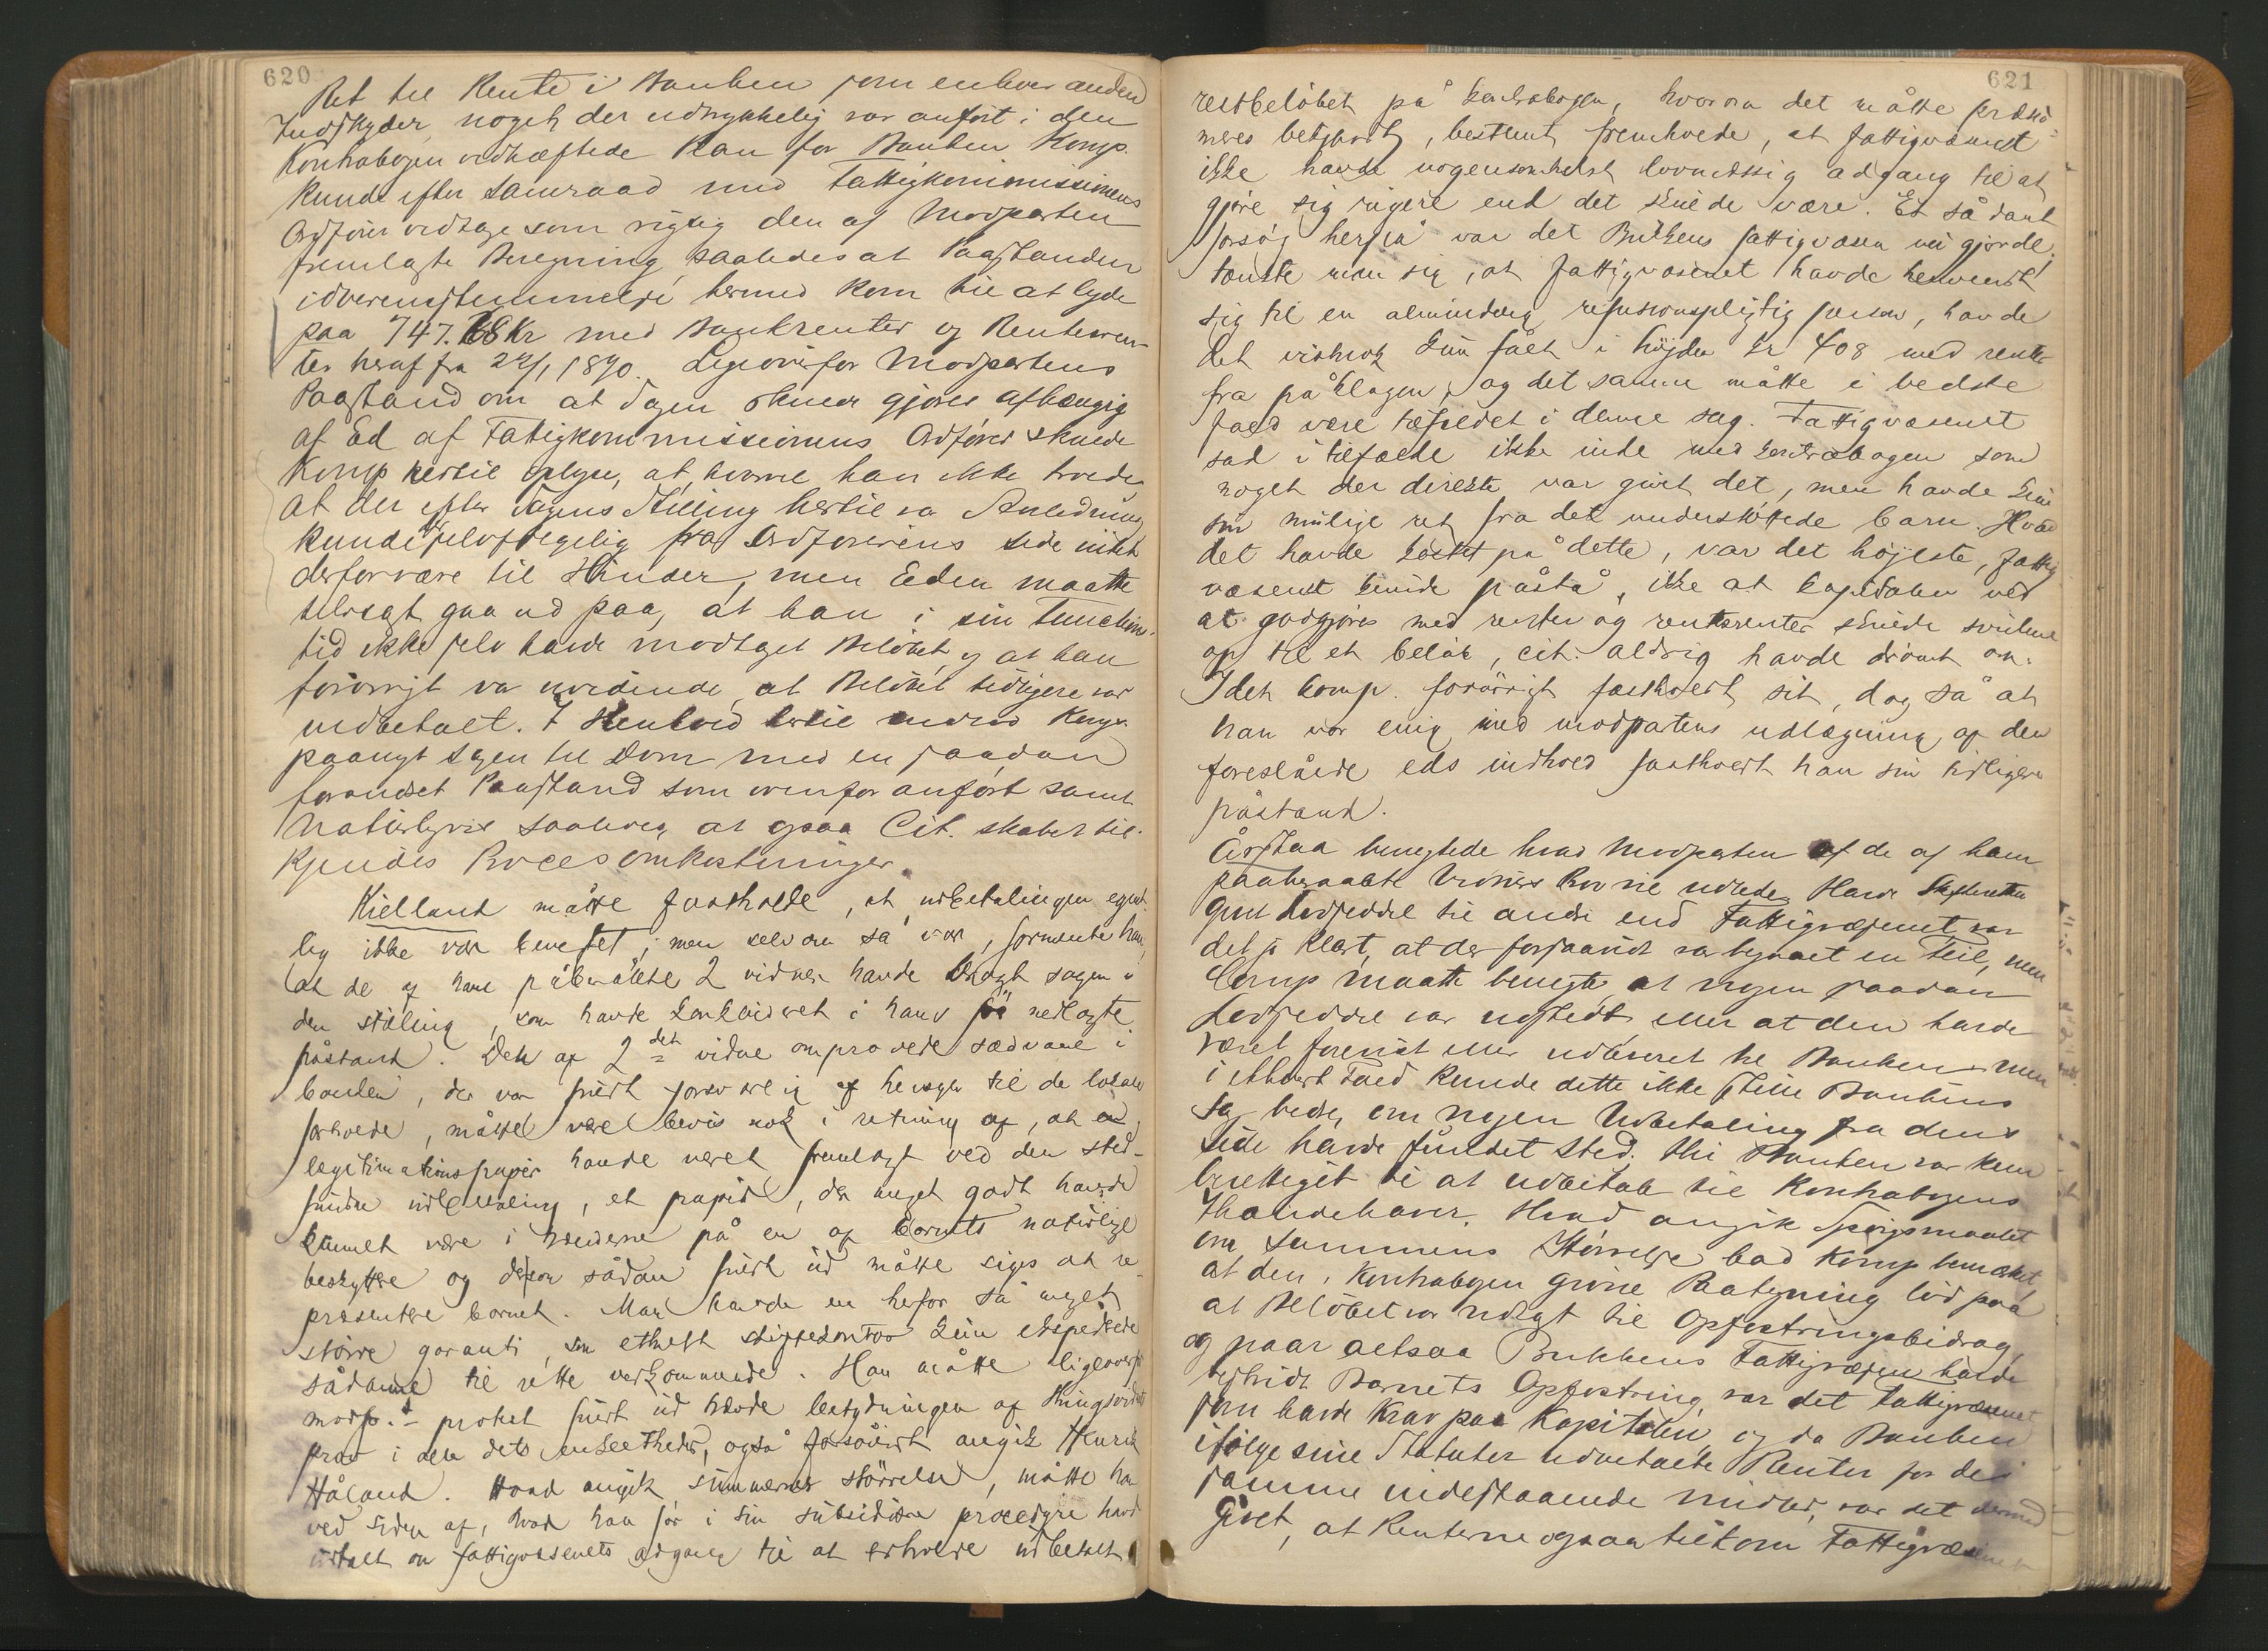 620
Ret til Rente i Banken som enhver anden
Indskyder, noget der udtrykkelig var anført i den
Kontrabogen vedhæftede Plan for Banken Komp.
kunde efter Samraad med Fattigkommissionens
Ordfører vedtage som rigtig den af Modparten
fremlagte Beregning, saaledes at Paastanden
i overensstemmelse hermed kom til at lyde
paa 747.68 Kr med Bankrenter og Renteren-
ter heraf fra 24/1 1890. Ligeoverfor Modpartens
Paastand om at Sagen skulde gjøres afhængig
af Ed af Fatigkommissionens Ordfører skulde
Komp hertil oplyse, at hvorvel han ikke troede
at der efter Sagens Stilling hertil var Anledning
kunde selvfølgelig fra Ordførerens side intet
derfor være til Hinder, men Eden maatte
selvsagt gaa ud paa, at han i sin Funktions-
tid ikke selv havde modtaget Beløbet og at han
forøvrigt var uvidende, at Beløbet tidligere var
udbetalt. I Henhold hertil Komp.
paanyt Sagen til Dom med en saadan
forandret Paastand som ovenfor anført samt
Naturligvis saaledes at ogsaa Cit. skulde til-
kjendes Procesomkostninger.
Kielland måtte fastholde, at udbetalingen egent-
lig ikke var bevist; men selv om så var, formente han,
at de af ham påberåbte 2 vidner havde bragt sagen i
den stilling, som havde konkluderet i hans nu nedlagte
påstand. Det af 2det vidne omprovede sædvane i
banken, der var fuldt forsvarlig af hensyn til de lokale
forholde, måtte være bevis nok i retning af, at et
legitimationspapir havde været fremlagt ved den sted-
fundne udbetaling, et papir, der meget godt havde
kunnet være i hænderne på en af barnets naturlige
beskyttere og derfor sådan fuldt ud måtte siges at re-
præsentere barnet. Man havde en herfor så meget
større garanti, som ethvert skiftekontor kun expederede
sådanne til rette vedkommende. Han måtte ligeoverfor
modp. t protest fuldt ud hævde betydningen af thingsvidnets
prov i alle dets enkeltheder, også forsåvidt angik Henrik
Håland. Hvad angik summernes størrelse, måtte han
ved siden af, hvad han før i sin subsidiære procedyre havde
udtalt om fattigvæsenets adgang til at erholde udbetalt
621
restbeløbet på kontrabogen, hvorom det måtte præsu-
meres betydeligt, bestemt fremhæve, at fattigvæsenet
ikke havde nogensomhelst lovmæssig adgang til at
gjøre sig rigere end det skulde være. Et sådant
forsøg herpå var det Buktens fattigvæsen nu gjorde.
tænkte man sig, at fattigvæsenet havde henvendt
sig til en almindelig refusionspligtig person, havde
det vistnok kun fået i højden kr 408 med rente
fra påklagen, og det samme måtte i bedste
fald være tilfældet i denne sag. Fattigvæsenet
sad i tilfælde ikke inde med kontrabogen som
noget der direkte var givet det, men havde kun
sin mulige ret fra det understøttede barn. Hvad
det havde kostet på dette, var det højeste, fattig
væsenet kunde påstå, ikke at kapitalen ved
at godgjøres med renter og rentesrenter skulde svulme
op til et beløb, cit. aldrig havde drømt om.
Idet komp. forøvrigt fastholdt sit, dog så at
han var enig med modpartens udlægning af den
foreslåede eds indhold fastholdt han sin tidligere
påstand.
Årstaa benegtede hvad Modparten af de af ham
paaberaabte Vidners Prov vil udlede. Havde Skifteretten
givet Lodseddel til andre end Fattigvæsenet var
det jo klart, at der forsaavidt var begaaet en Feil, men
Comp maatte benegte, at nogen saadan
Lodseddel var udstedt eller at den havde
været forevist eller udleveret til Banken men
i ethvert Fald kunde dette ikke stille Bankens
Sag bedre, om nogen Udbetaling fra dens
Side havde fundet Sted. thi Banken var kun
berettiget til at udbetale til Kontrabogens
Ihændehaver. Hvad angik Spørgsmaalet
om Summens Størrelse bad Komp bemærket,
at den i Kontrabogen givne Paategning lød paa
at Beløbet var udlagt til Opfostringsbidrag,
og naar altsaa Bukkens Fattigvæsen havde
bestridt Barnets Opfostring, var det Fattigvæsenet
som havde Krav paa Kapitalen, og da Banken
ifølge sine Statuter udbetalte Renter for de i
samme indestaaende midler, var det dermed
Givet, at Renterne ogsaa tilkom Fattigvæsenet